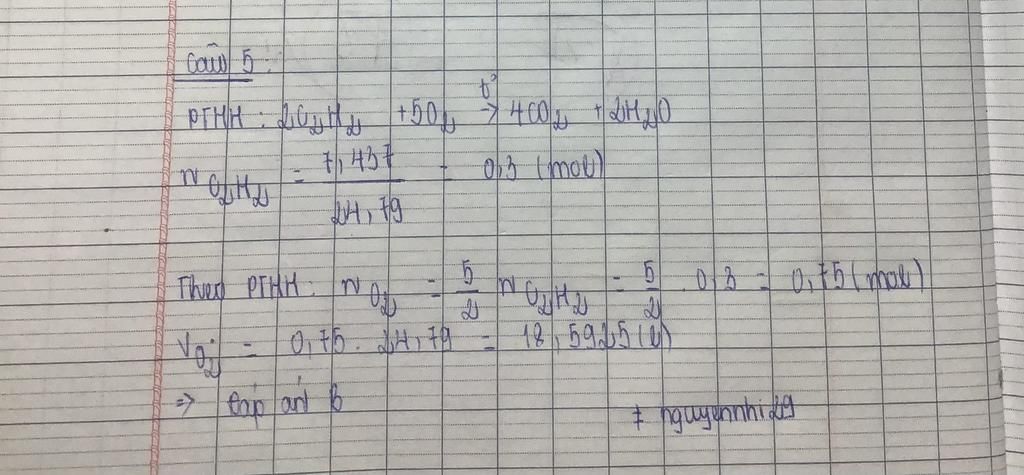 Câu 5:
PTHH: 2C₂H₂ + 5O₂ t° → 4CO₂ + 2H₂O
n C₂H₂ = 7,437 / 24,79 = 0,3 (mol)
Theo PTHH: n O₂ = 5/2 n C₂H₂ = 5/2 . 0,3 = 0,75 (mol)
V O₂ = 0,75 . 24,79 = 18,5925 (l)
=> Đáp án B
# nguyennhi29